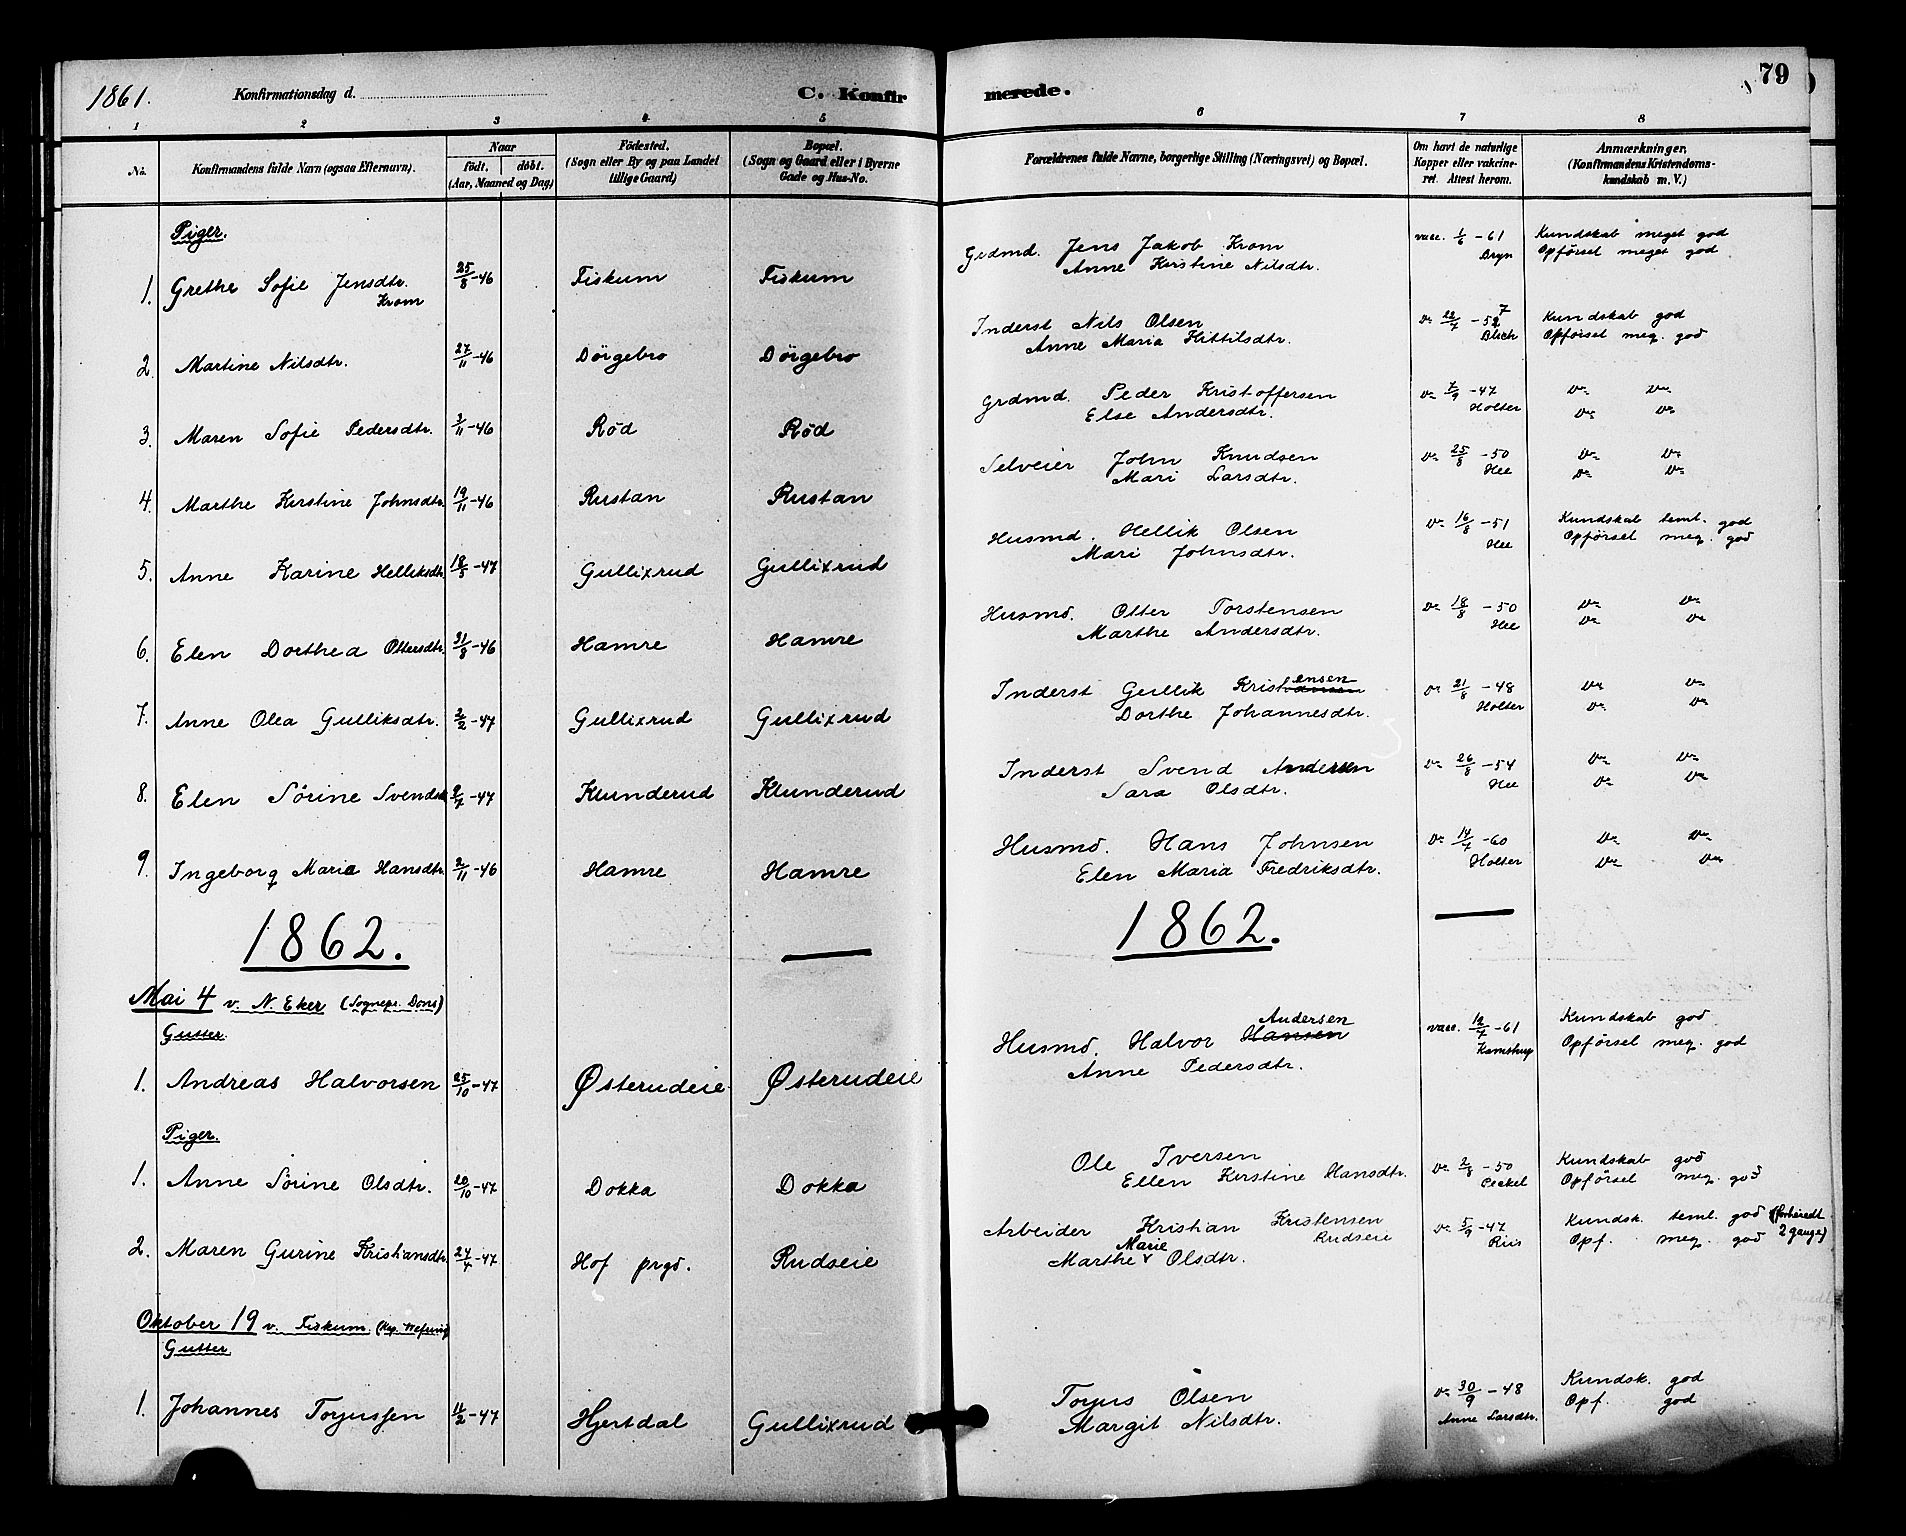 1861. Konfirmationsdag d. C. Konfir merede. 79
1 2 3 4 5 6 7 8
No. Konfirmandens fulde Navn (ogsaa Efternavn). Naar födt. döbt. (Aar, Maaned og Dag) Födested. (Sogn eller By og paa Landet tillige Gaard) Bopæl. (Sogn og Gaard eller i Byerne Gade og Hus-No. Forældrenes fulde Navne, borgerlige Stilling (Næringsvei) og Bopæl. Om havt de naturlige Kopper eller vakcineret. Attest herom. Anmærkninger, (Konfirmandens Kristendomskundskab m. V.)
Piger.
1. Grethe Sofie Jensdtr. Krom 25/8-46 Fiskum Fiskum Grdmd. Jens Jakob Krom vacc. 1/6-61 Kundskab meget god
Anne Kirstine Nilsdtr. Bryn Opförsel meget god
2. Martine Nilsdtr. 27/11-46 Dörgebro Dörgebro Inderst Nils Olsen v= 22/7-52 7 Kundskab god
Anne Maria Kittilsdtr. Blich Opförsel meg. god
3. Maren Sofie Pedersdtr. 3/11-46 Röd Röd Grdmd. Peder Kristoffersen v= 7/9-47 v= v=
Else Andersdtr. Holter v= v=
4. Marthe Kirstine Johnsdtr. 19/11-46 Rustan Rustan Selveier John Knudsen v= 25/8-50 v= v=
Mari Larsdtr. Hee v= v=
5. Anne Karine Helliksdtr. 18/3-47 Gullixrud Gullixrud Husmd. Hellik Olsen v= 16/8-51 Kundskab teml. god
Mari Johnsdtr. Hee Opförsel meg. god
6. Elen Dorthea Ottersdtr. 31/8-46 Hamre Hamre Husmd. Otter Torstensen v= 18/8-50 v= v=
Marthe Andersdtr. Hee v= v=
7. Anne Olea Gulliksdtr. 2/2-47 Gullixrud Gullixrud Inderst Gullik Kristensen v= 21/8-48 v= v=
Dorthe Johannesdtr. Holter v= v=
8. Elen Sörine Svendsdtr 2/7-47 Klunderud Klunderud Inderst Svend Andersen v= 26/8-54 v= v=
Sara Olsdtr. Hee v= v=
9. Ingeborg Maria Hansdtr. 2/11-46 Hamre Hamre Husmd. Hans Johnsen v= 14/7-60 v= v=
Elen Maria Fredriksdtr. Holter v= v=
1862. 1862.
Mai 4 v. N. Eker (Sognepr. Dons)
Gutter.
1. Andreas Halvorsen 25/10-47 Østerudeie Østerudeie Husmd. Halvor Hansen Andersen vacc. 12/7-61 Kundskab god
Anne Pedersdtr. Kamstrup Opförsel meg. god
Piger.
1. Anne Sörine Olsdtr. 20/10-47 Dokka Dokka Ole Iversen v= 2/8-50 Kundskab god
Ellen Kirstine Hansdtr. Peckel Opförsel meg. god
2. Maren Gurine Kristiansdtr 24/4-47 Hof prgd. Rudseie Arbeider Kristian Kristensen Rudseie v= 5/9-47 Kundsk. teml. god (forberedt
Marthe Marie Olsdtr. Riis Opf. meg. god 2 gange)
Oktober 19 v. Fiskum (Kap. Wefring)
Gutter.
1. Johannes Torjussen 11/2-47 Hjertdal Gullixrud Torjus Olsen v= 30/9-48 Kundsk. god
Margit Nilsdtr. Anne Larsdtr. Opf. god